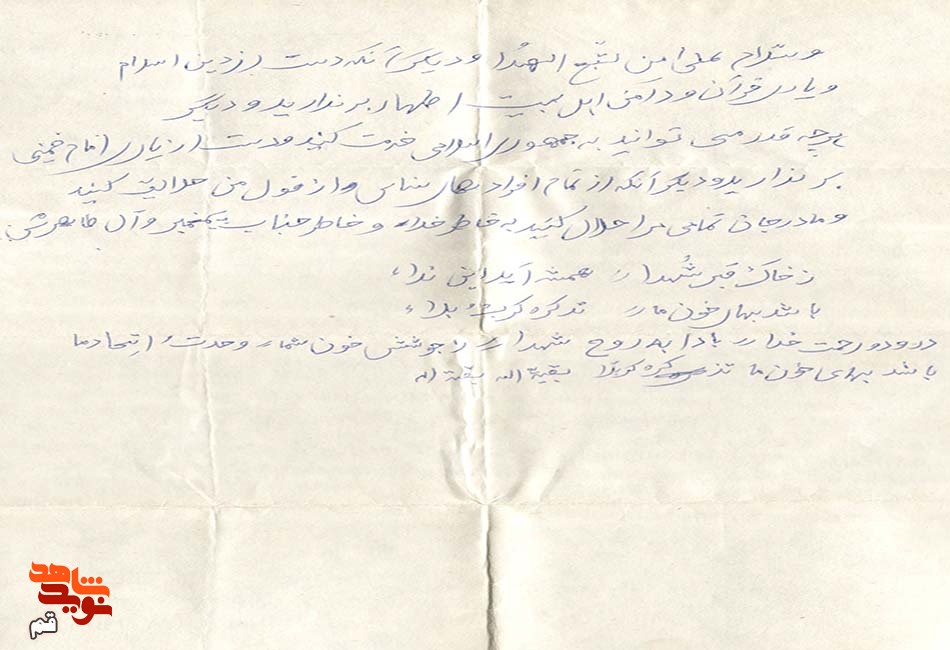 وسلام علی من تبّع الهُدا و دیگر آنکه دست از دین اسلام
و یاری قرآن و دامن اهل بیت اطهار برندارید و دیگر
هرچه قدر می توانید به جمهوری اسلامی خدمت کنید و دست از یاری امام خمینی
برندارید و دیگر آنکه از تمام افرادیکه می شناس از قول من حلالیت کنید
و مادرجان تمامی مرا حلال کنید به خاطر خدا و خاطر جناب پیغمبر و آل طاهرش
ز خاک قبر شُهدا همشه آید این ندا
باشد بهای خون ما تذکره کرب بلا
درود و رحمت خدا بادا به روح شهدا ز جوشش خون شما وحدت اتحاد ما
باشد بهای خون ما تذکره کربلا بقیة اله بقیة اله
نوید شاهد
قم